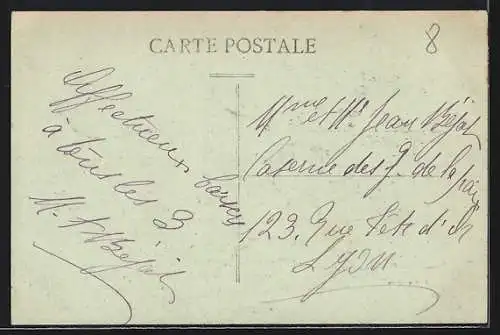 CARTE POSTALE
8
Affectueux baisers
à tous les 3
M. Béjat
Mme et Mr Jean Béjat
Caserne des G. de la paix
123, Rue Tête d'Or
Lyon